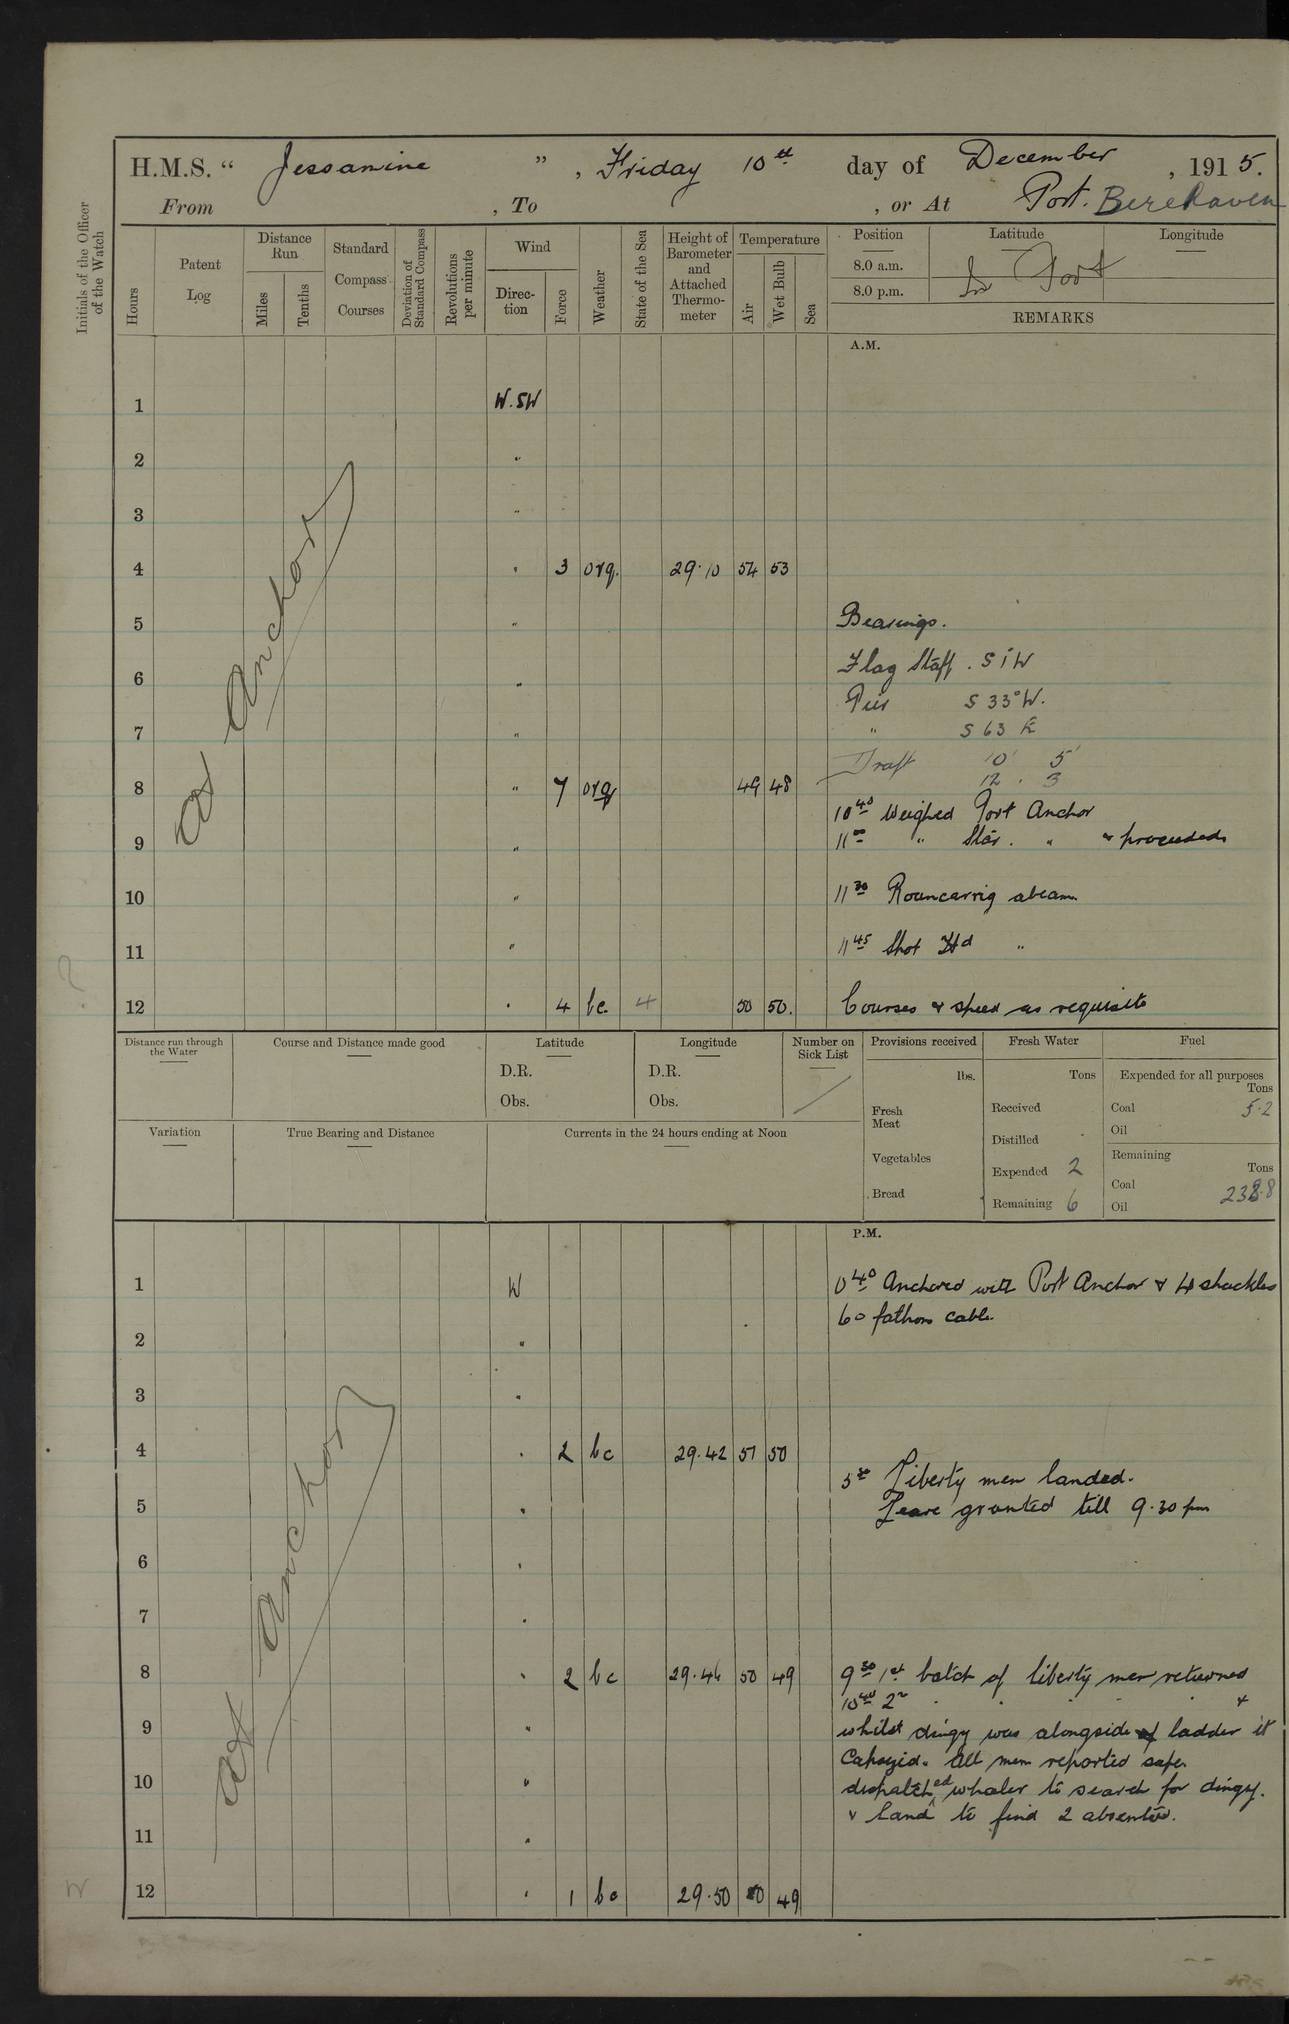 H.M.S. “ Jessamine ” , Friday 10th day of December , 1915.
From , To , or At Port. Berehaven
Initials of the Officer of the Watch
Hours
Patent Log
Distance Run
Miles
Tenths
Standard Compass Courses
Deviation of Standard Compass
Revolutions per minute
Wind
Direction
Force
Weather
State of the Sea
Height of Barometer and Attached Thermometer
Temperature
Air
Wet Bulb
Sea
Position
Latitude
Longitude
8.0 a.m.
8.0 p.m.
In Port
REMARKS
A.M.
At Anchor
1 W.SW
2 "
3 "
4 " 3 org. 29.10 54 53
5 " Bearings.
6 " Flag Staff . S 1 W
Pier S 33° W.
7 " " S 63 E
Draft 10' 5'
8 " 7 org 49 48 12 . 3
10 40 Weighed Port Anchor
9 " 11 00 " Star. " & proceeded
10 " 11 30 Roancarrig abeam
11 " 11 45 Shot Hd "
12 " 4 bc. 4 50 50. Courses & speed as requisite
Distance run through the Water
Course and Distance made good
Latitude
D.R.
Obs.
Longitude
D.R.
Obs.
Number on Sick List
Provisions received
lbs.
Fresh Meat
Vegetables
Bread
Fresh Water
Tons
Received
Distilled
Expended 2
Remaining 6
Fuel
Expended for all purposes
Tons
Coal 5.2
Oil
Remaining
Tons
Coal
Oil
Variation
True Bearing and Distance
Currents in the 24 hours ending at Noon
P.M.
At Anchor
1 W 0 40 Anchored with Port Anchor & 4 shackles
60 fathom cable.
2 "
3 "
4 " 2 bc 29.42 51 50
Liberty men landed.
5 " Leave granted till 9.30 pm
6 "
7 "
8 " 2 bc 29.46 50 49 9 30 1st batch of liberty men returned
10 40 2n " " " " &
9 " whilst dingy was alongside ladder it
Capsyid. All men reported safe.
10 " dispatched whaler to search for dingy.
& land to find 2 absentees.
11 "
12 " 1 bc 29.50 50 49